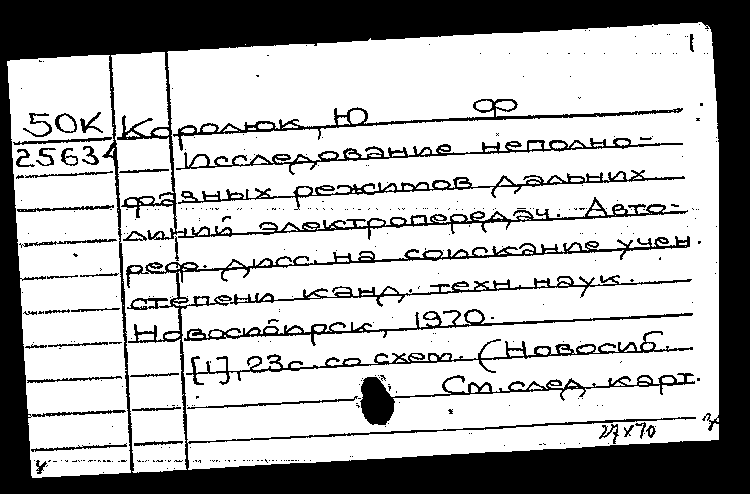 1
50К Королюк, Ю Ф
25634 Исследование неполно-
фазных режимов дальних
линий электропередач. Авто-
реф. дисс. на соискание учен.
степени канд. техн. наук.
Новосибирск, 1970.
[1], 23с. со схем. (Новосиб.
См. след. карт.
27 X 70